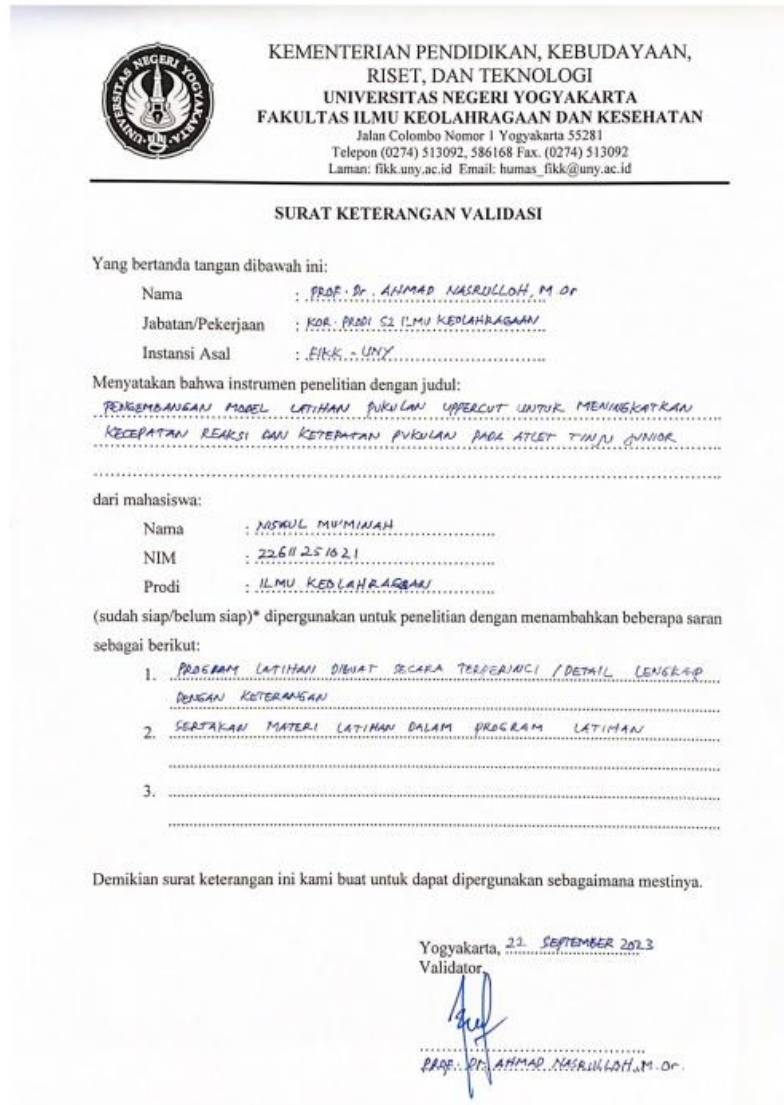 UNIVERSITAS NEGERI YOGYAKARTA
UNY
KEMENTERIAN PENDIDIKAN, KEBUDAYAAN,
RISET, DAN TEKNOLOGI
UNIVERSITAS NEGERI YOGYAKARTA
FAKULTAS ILMU KEOLAHRAGAAN DAN KESEHATAN
Jalan Colombo Nomor 1 Yogyakarta 55281
Telepon (0274) 513092, 586168 Fax. (0274) 513092
Laman: fikk.uny.ac.id Email: humas_fikk@uny.ac.id
SURAT KETERANGAN VALIDASI
Yang bertanda tangan dibawah ini:
Nama : PROF. Dr. AHMAD NASRULLOH, M.Or
Jabatan/Pekerjaan : KOR. PRODI S2 ILMU KEOLAHRAGAAN
Instansi Asal : FIKK - UNY
Menyatakan bahwa instrumen penelitian dengan judul:
PENGEMBANGAN MODEL LATIHAN PUKULAN UPPERCUT UNTUK MENINGKATKAN
KECEPATAN REAKSI DAN KETEPATAN PUKULAN PADA ATLET TINJU JUNIOR
dari mahasiswa:
Nama : MU'MINAH
NIM : 22611251021
Prodi : ILMU KEOLAHRAGAAN
(sudah siap/belum siap)* dipergunakan untuk penelitian dengan menambahkan beberapa saran
sebagai berikut:
1. PROGRAM LATIHAN DIBUAT SECARA TERPERINCI / DETAIL LENGKAP
DENGAN KETERANGAN
2. SERTAKAN MATERI LATIHAN DALAM PROGRAM LATIHAN
3.
Demikian surat keterangan ini kami buat untuk dapat dipergunakan sebagaimana mestinya.
Yogyakarta, 22 SEPTEMBER 2023
Validator,
PROF. Dr. AHMAD NASRULLOH, M.Or.